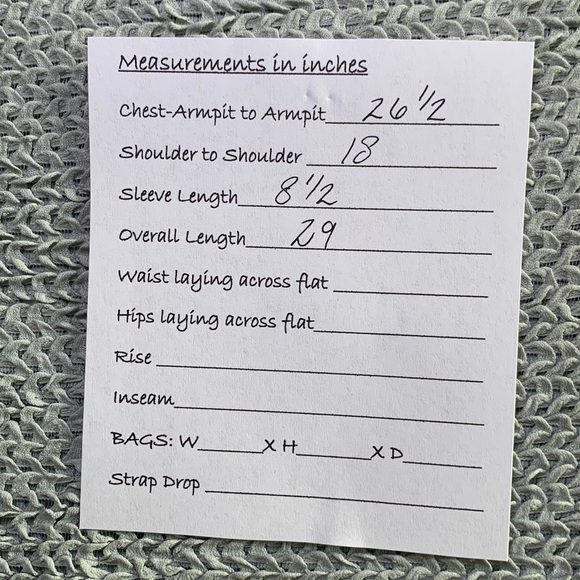 Measurements in inches
Chest-Armpit to Armpit 26 1/2
Shoulder to Shoulder 18
Sleeve Length 8 1/2
Overall Length 29
Waist laying across flat
Hips laying across flat
Rise
Inseam
BAGS: W______X H______X D______
Strap Drop